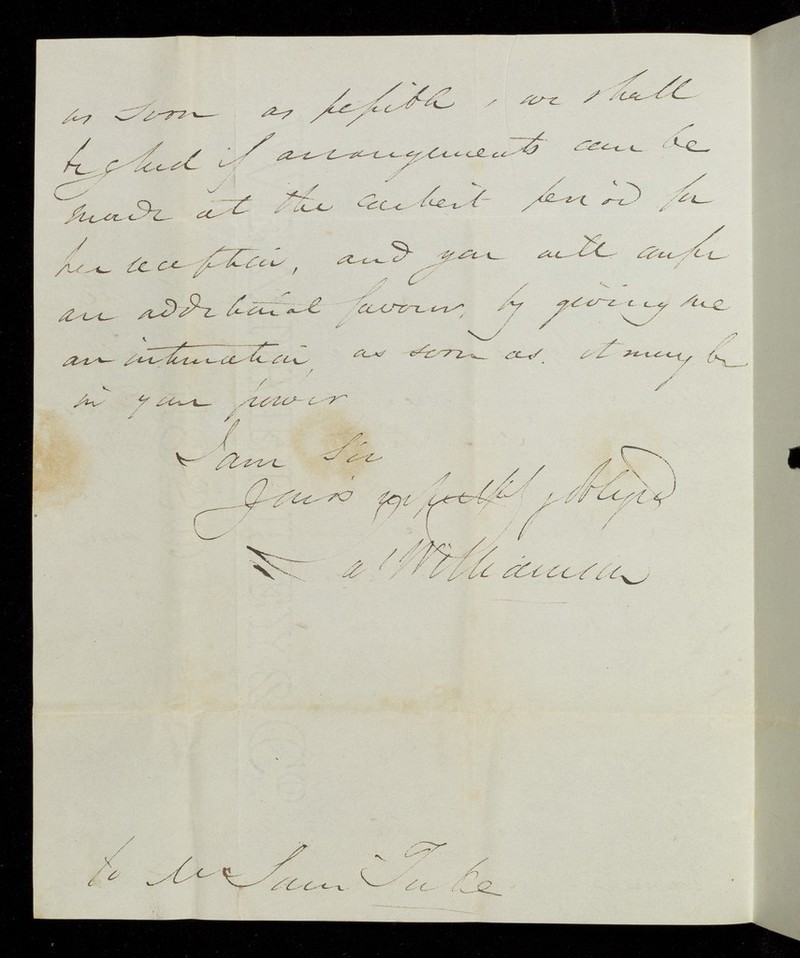 as soon as possible, we shall
be glad if arrangements can be
made at the earliest period for
her reception, and you will confer
an additional favour, by giving me
an intimation, as soon as it may be
in your power
I am Sir
Yours respectfully obliged
Williamson
to Mr Saml Tuke